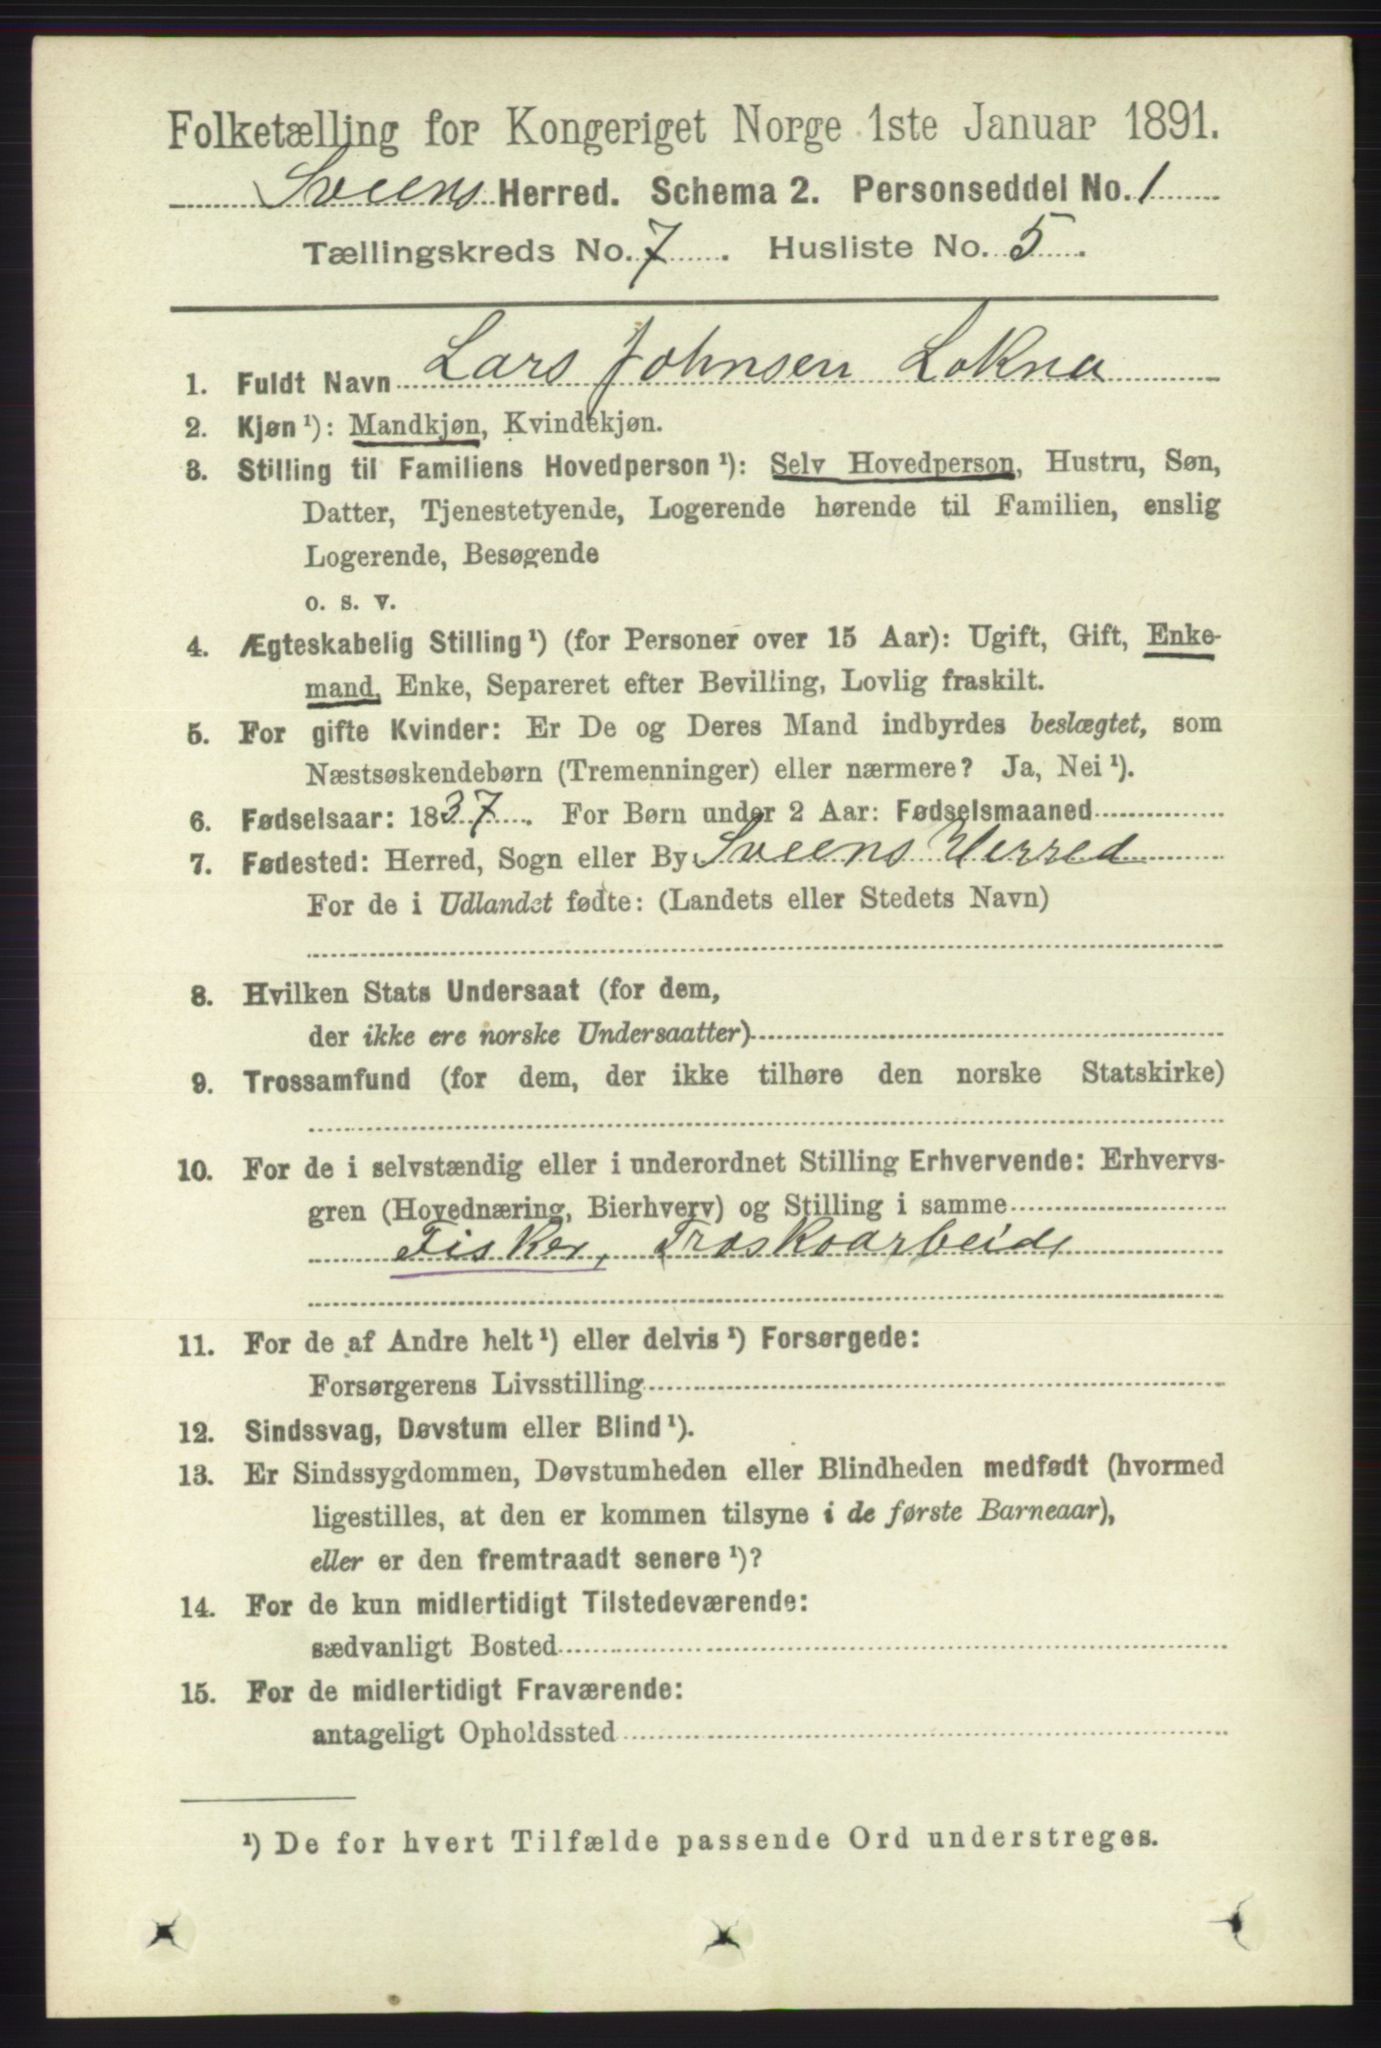 Folketælling for Kongeriget Norge 1ste Januar 1891.
Sveens Herred. Schema 2. Personseddel No. 1
Tællingskreds No. 7. Husliste No. 5.
1. Fuldt Navn Lars Johnsen Lokna
2. Kjøn¹): Mandkjøn, Kvindekjøn.
3. Stilling til Familiens Hovedperson¹): Selv Hovedperson, Hustru, Søn,
Datter, Tjenestetyende, Logerende hørende til Familien, enslig
Logerende, Besøgende
o. s. v.
4. Ægteskabelig Stilling¹) (for Personer over 15 Aar): Ugift, Gift, Enke-
mand, Enke, Separeret efter Bevilling, Lovlig fraskilt.
5. For gifte Kvinder: Er De og Deres Mand indbyrdes beslægtet, som
Næstsøskendebørn (Tremenninger) eller nærmere? Ja, Nei¹).
6. Fødselsaar: 1837. For Børn under 2 Aar: Fødselsmaaned
7. Fødested: Herred, Sogn eller By Sveens Herred
For de i Udlandet fødte: (Landets eller Stedets Navn)
8. Hvilken Stats Undersaat (for dem,
der ikke ere norske Undersaatter)
9. Trossamfund (for dem, der ikke tilhøre den norske Statskirke)
10. For de i selvstændig eller i underordnet Stilling Erhvervende: Erhvervs-
gren (Hovednæring, Bierhverv) og Stilling i samme
Fisker, Træskoarbeide
11. For de af Andre helt¹) eller delvis¹) Forsørgede:
Forsørgerens Livsstilling
12. Sindssvag, Døvstum eller Blind¹).
13. Er Sindssygdommen, Døvstumheden eller Blindheden medfødt (hvormed
ligestilles, at den er kommen tilsyne i de første Barneaar),
eller er den fremtraadt senere¹)?
14. For de kun midlertidigt Tilstedeværende:
sædvanligt Bosted
15. For de midlertidigt Fraværende:
antageligt Opholdssted
¹) De for hvert Tilfælde passende Ord understreges.